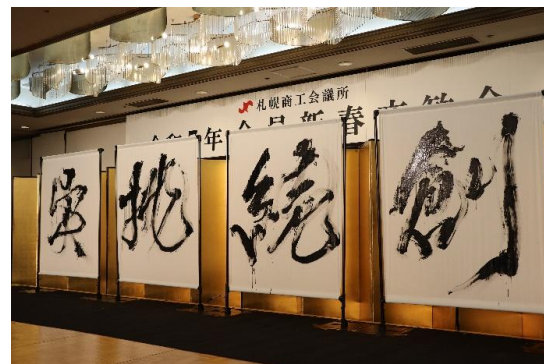 札幌商工会議所
年 会員新春
創
続
挑